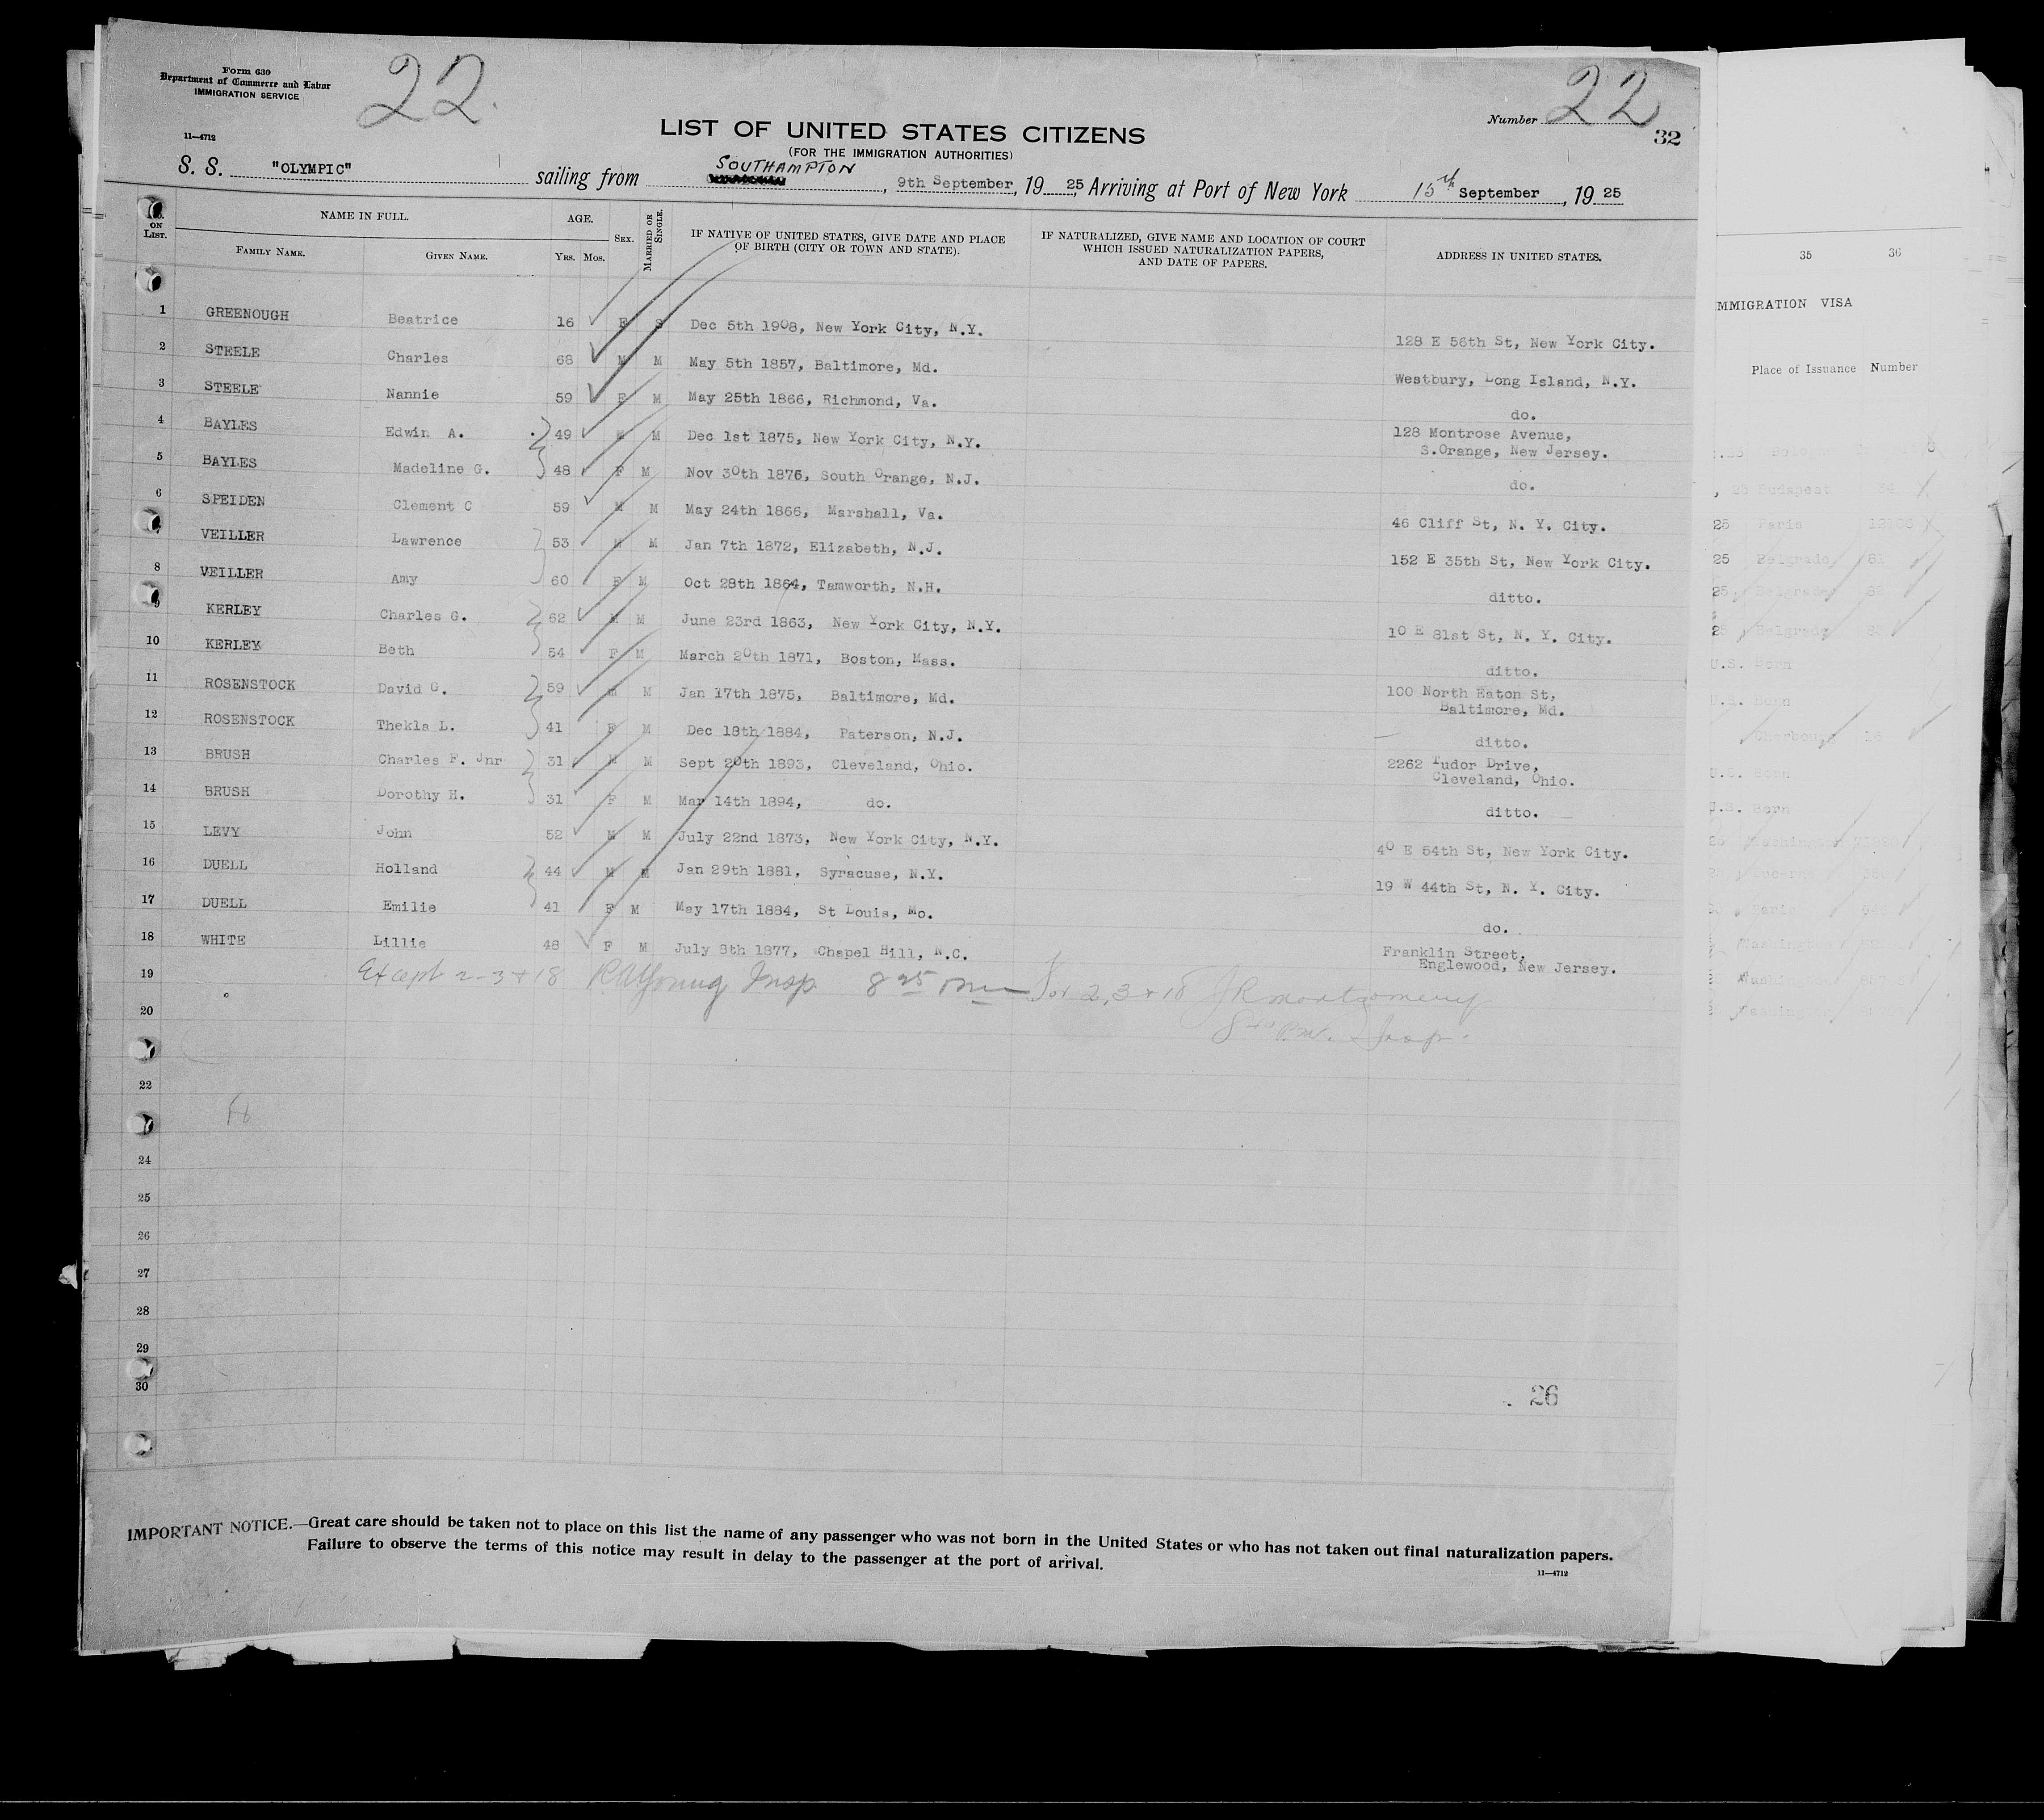 Form 630
Department of Commerce and Labor
IMMIGRATION SERVICE
22.
11—4712
LIST OF UNITED STATES CITIZENS
(FOR THE IMMIGRATION AUTHORITIES)
Number 22
32
S. S. "OLYMPIC" sailing from SOUTHAMPTON, 9th September, 1925, Arriving at Port of New York 15th September, 1925
ON LIST. NAME IN FULL. AGE. SEX. MARRIED OR SINGLE. IF NATIVE OF UNITED STATES, GIVE DATE AND PLACE OF BIRTH (CITY OR TOWN AND STATE). IF NATURALIZED, GIVE NAME AND LOCATION OF COURT WHICH ISSUED NATURALIZATION PAPERS, AND DATE OF PAPERS. ADDRESS IN UNITED STATES.
FAMILY NAME. GIVEN NAME. YRS. MOS.
1 GREENOUGH Beatrice 16 F S Dec 5th 1908, New York City, N.Y. 128 E 56th St, New York City.
2 STEELE Charles 68 M M May 5th 1857, Baltimore, Md. Westbury, Long Island, N.Y.
3 STEELE Nannie 59 F M May 25th 1866, Richmond, Va. do.
4 BAYLES Edwin A. 49 M M Dec 1st 1875, New York City, N.Y. 128 Montrose Avenue, S.Orange, New Jersey.
5 BAYLES Madeline G. 48 F M Nov 30th 1876, South Orange, N.J. do.
6 SPEIDEN Clement C 59 M M May 24th 1866, Marshall, Va. 46 Cliff St, N. Y. City.
VEILLER Lawrence 53 M M Jan 7th 1872, Elizabeth, N.J. 152 E 35th St, New York City.
8 VEILLER Amy 60 F M Oct 28th 1864, Tamworth, N.H. ditto.
9 KERLEY Charles G. 62 M M June 23rd 1863, New York City, N.Y. 10 E 81st St, N. Y. City.
10 KERLEY Beth 54 F M March 20th 1871, Boston, Mass. ditto.
11 ROSENSTOCK David G. 59 M M Jan 17th 1875, Baltimore, Md. 100 North Eaton St, Baltimore, Md.
12 ROSENSTOCK Thekla L. 41 F M Dec 18th 1884, Paterson, N.J. ditto.
13 BRUSH Charles F. Jnr 31 M M Sept 20th 1893, Cleveland, Ohio. 2262 Tudor Drive, Cleveland, Ohio.
14 BRUSH Dorothy H. 31 F M Mar 14th 1894, do. ditto.
15 LEVY John 52 M M July 22nd 1873, New York City, N.Y. 40 E 54th St, New York City.
16 DUELL Holland 44 M M Jan 29th 1881, Syracuse, N.Y. 19 W 44th St, N. Y. City.
17 DUELL Emilie 41 F M May 17th 1884, St Louis, Mo. do.
18 WHITE Lillie 48 F M July 8th 1877, Chapel Hill, N.C. Franklin Street, Englewood, New Jersey.
19 Except 2-3+18 Young Insp 8 25 For 2, 3 + 18 JR Montgomery
20 8 40 P.M. Insp.
22
24
25
26
27
28
29
30
26
IMPORTANT NOTICE.—Great care should be taken not to place on this list the name of any passenger who was not born in the United States or who has not taken out final naturalization papers.
Failure to observe the terms of this notice may result in delay to the passenger at the port of arrival.
11—4712
35 36
MMIGRATION VISA
Place of Issuance Number
Budapest
25 Paris
25 Belgrade, 81
25, Belgrade
25, Belgrade
U.S. Born
U.S. Born
Cherbourg
U.S. Born
U.S. Born
Paris
Washington
Washington
Washington